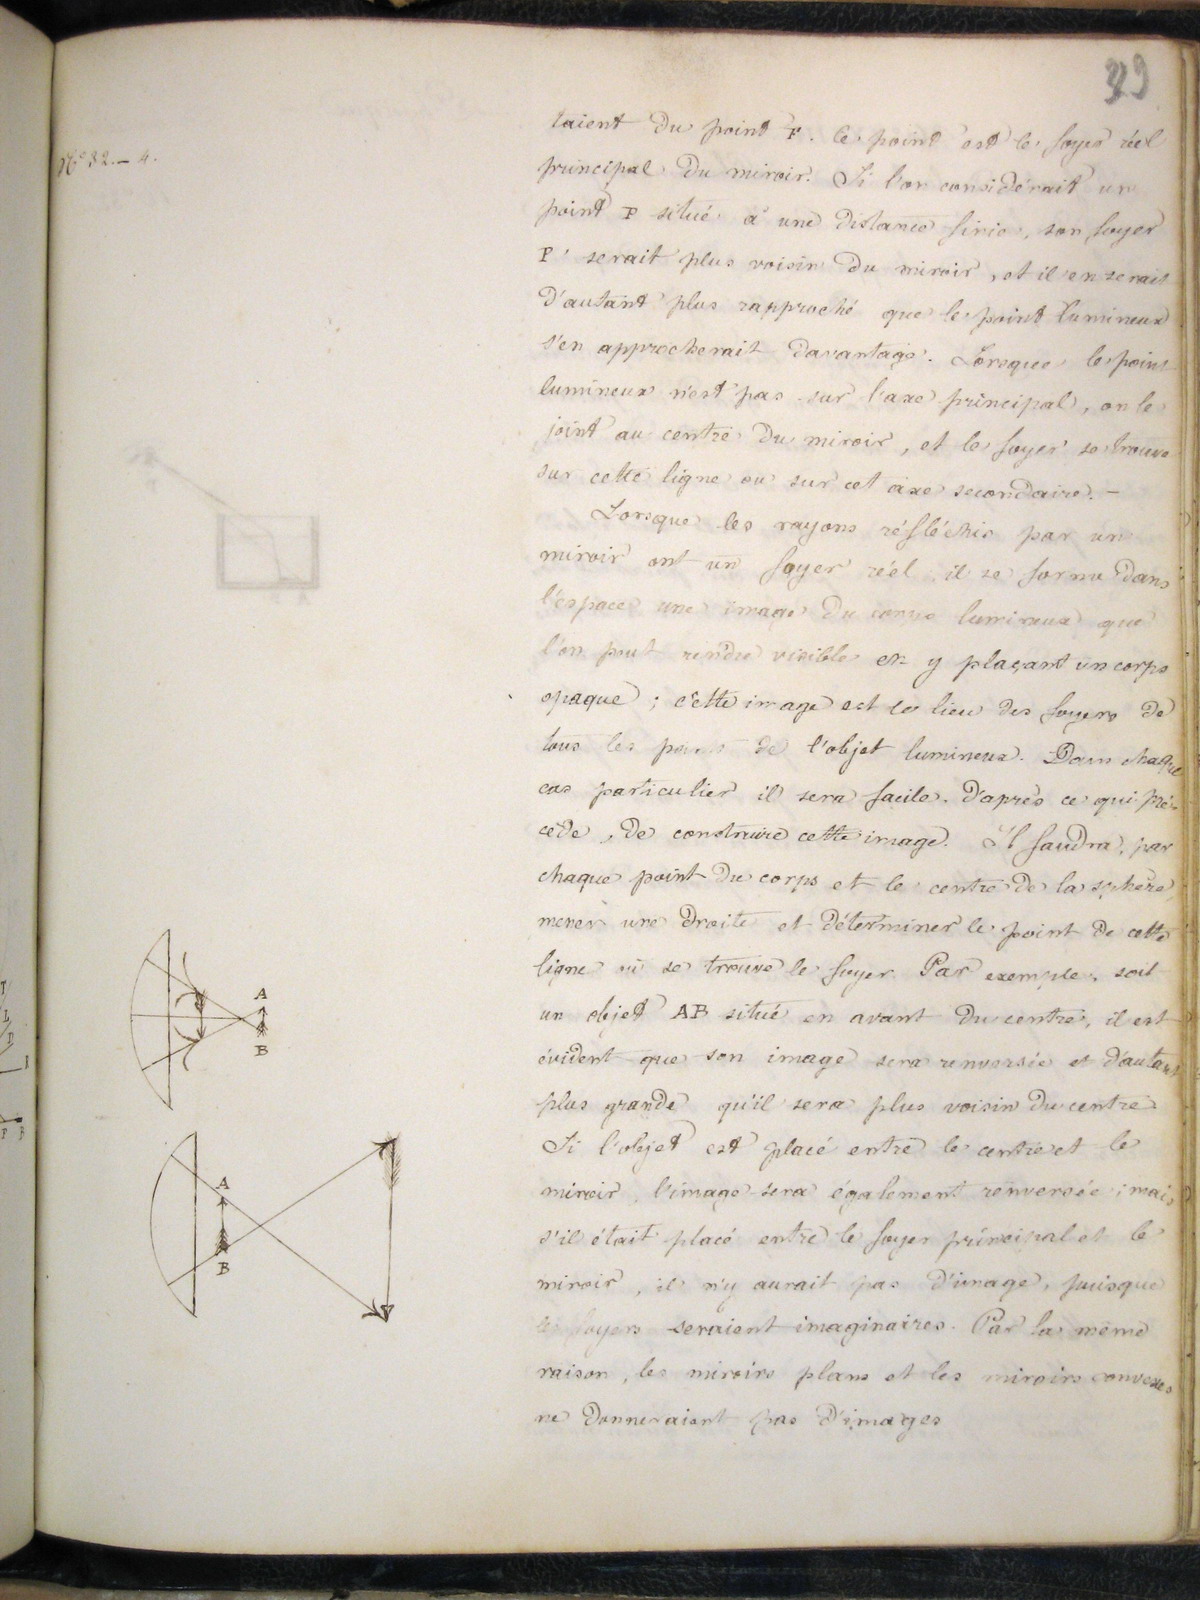 39
N° 32. – 4.
taient du point F. Ce point est le foyer réel
principal du miroir. Si l'on considérait un
point P situé à une distance finie, son foyer
P' serait plus voisin du miroir, et il en serait
d'autant plus rapproché que le point lumineux
s'en approcherait davantage. Lorsque le point
lumineux n'est pas sur l'axe principal, on le
joint au centre du miroir, et le foyer se trouve
sur cette ligne ou sur cet axe secondaire. –
Lorsque les rayons réfléchis par un
miroir ont un foyer réel, il se forme dans
l'espace une image du corps lumineux que
l'on peut rendre visible en y plaçant un corps
opaque ; cette image est le lieu des foyers de
tous les points de l'objet lumineux. Dans chaque
cas particulier il sera facile, d'après ce qui pré-
cède, de construire cette image. Il faudra, par
chaque point du corps et le centre de la sphère,
mener une droite et déterminer le point de cette
ligne où se trouve le foyer. Par exemple, soit
un objet AB situé en avant du centre, il est
évident que son image sera renversée et d'autant
plus grande qu'il sera plus voisin du centre
Si l'objet est placé entre le centre et le
miroir, l'image sera également renversée ; mais
s'il était placé entre le foyer principal et le
miroir, il n'y aurait pas d'image, puisque
les foyers seraient imaginaires. Par la même
raison, les miroirs plans et les miroirs convexes
ne donneraient pas d'images
A
B
A
B